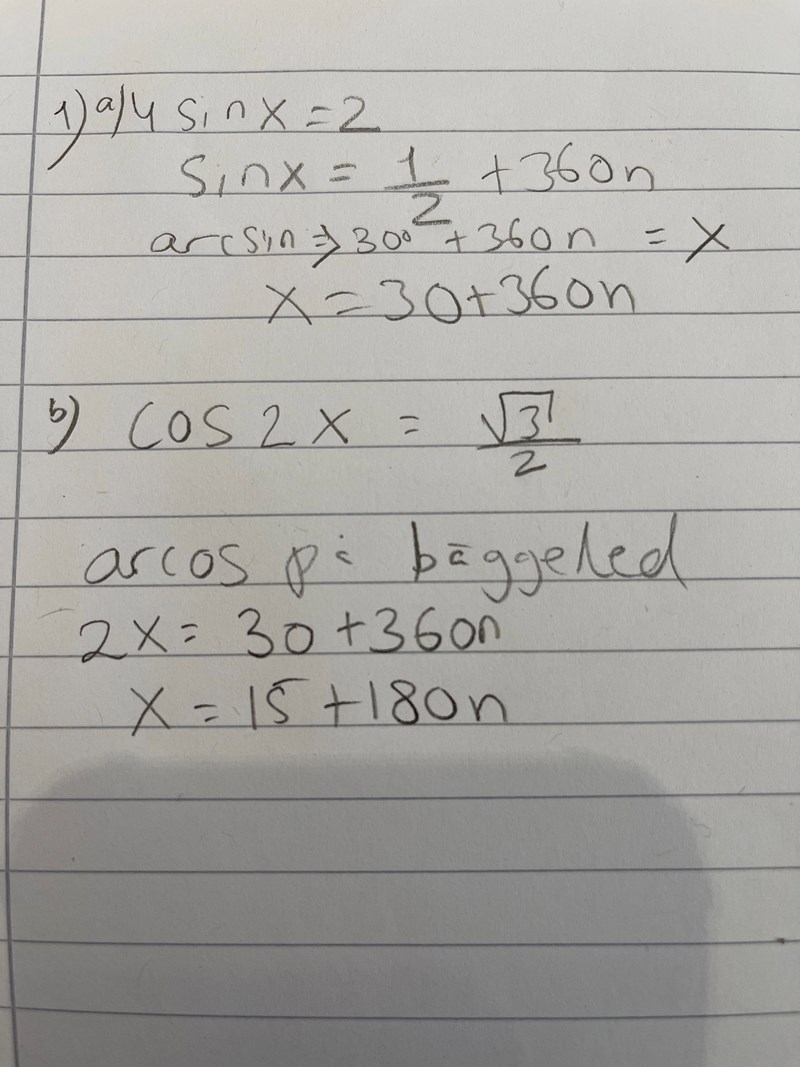 1) a) 4 sin x = 2
sin x = 1/2 + 360n
arcsin ⇒ 30° + 360n = x
x = 30 + 360n
b) cos 2x = √3/2
arcos på bäggeled
2x = 30 + 360n
x = 15 + 180n